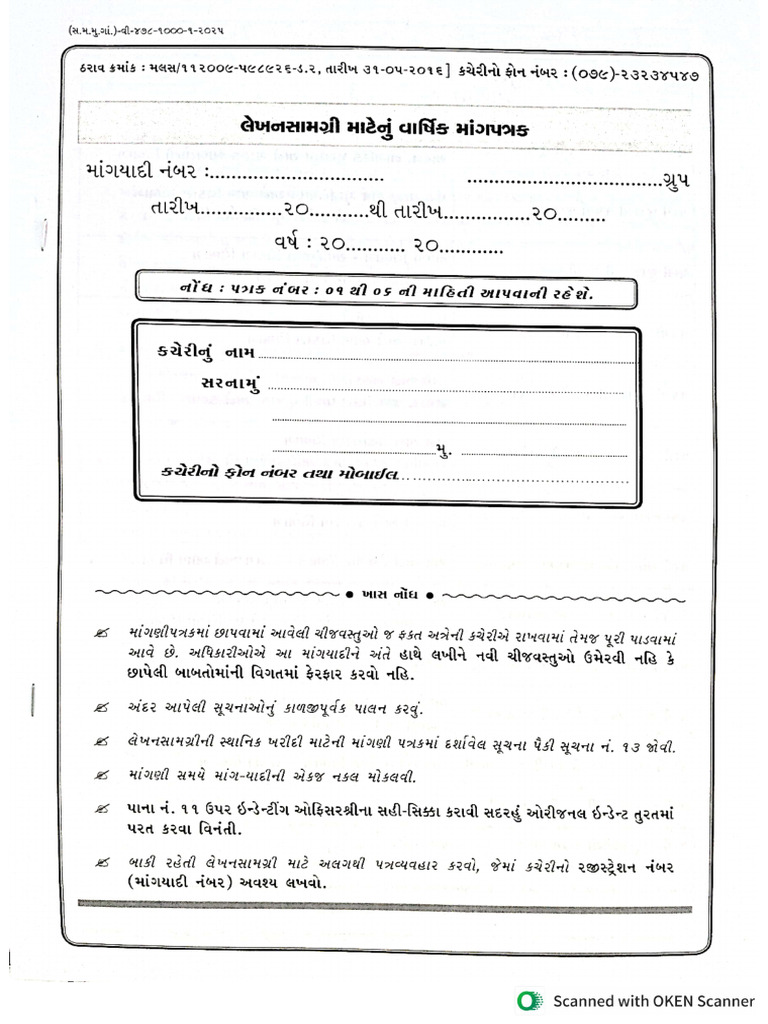 (સ.મ.મુ.ગાં.)-વી-૪૭૮-૧૦૦૦-૧-૨૦૨૫
ઠરાવ ક્રમાંક : મલસ/૧૧૨૦૦૯-૫૯૮૯૨૬-ડ.૨, તારીખ ૩૧-૦૫-૨૦૧૬] કચેરીનો ફોન નંબર : (૦૭૯)-૨૩૨૩૪૫૪૭
લેખનસામગ્રી માટેનું વાર્ષિક માંગપત્રક
માંગયાદી નંબર :............................... ...................................ગ્રુપ
તારીખ...............૨૦...........થી તારીખ................૨૦.........
વર્ષ : ૨૦........... ૨૦............
નોંધ : પત્રક નંબર : ૦૧ થી ૦૬ ની માહિતી આપવાની રહેશે.
કચેરીનું નામ ................................................................
સરનામું ................................................................
................................................................
................................ મુ. ................................
કચેરીનો ફોન નંબર તથા મોબાઈલ................................
● ખાસ નોંધ ●
માંગણીપત્રકમાં છાપવામાં આવેલી ચીજવસ્તુઓ જ ફક્ત અત્રેની કચેરીએ રાખવામાં તેમજ પૂરી પાડવામાં
આવે છે. અધિકારીઓએ આ માંગયાદીને અંતે હાથે લખીને નવી ચીજવસ્તુઓ ઉમેરવી નહિ કે
છાપેલી બાબતોમાંની વિગતમાં ફેરફાર કરવો નહિ.
અંદર આપેલી સૂચનાઓનું કાળજીપૂર્વક પાલન કરવું.
લેખનસામગ્રીની સ્થાનિક ખરીદી માટેની માંગણી પત્રકમાં દર્શાવેલ સૂચના પૈકી સૂચના નં. ૧૩ જોવી.
માંગણી સમયે માંગ-યાદીની એકજ નકલ મોકલવી.
પાના નં. ૧૧ ઉપર ઇન્ડેન્ટીંગ ઓફિસરશ્રીના સહી-સિક્કા કરાવી સદરહું ઓરીજનલ ઇન્ડેન્ટ તુરતમાં
પરત કરવા વિનંતી.
બાકી રહેતી લેખનસામગ્રી માટે અલગથી પત્રવ્યવહાર કરવો, જેમાં કચેરીનો રજીસ્ટ્રેશન નંબર
(માંગયાદી નંબર) અવશ્ય લખવો.
Scanned with OKEN Scanner